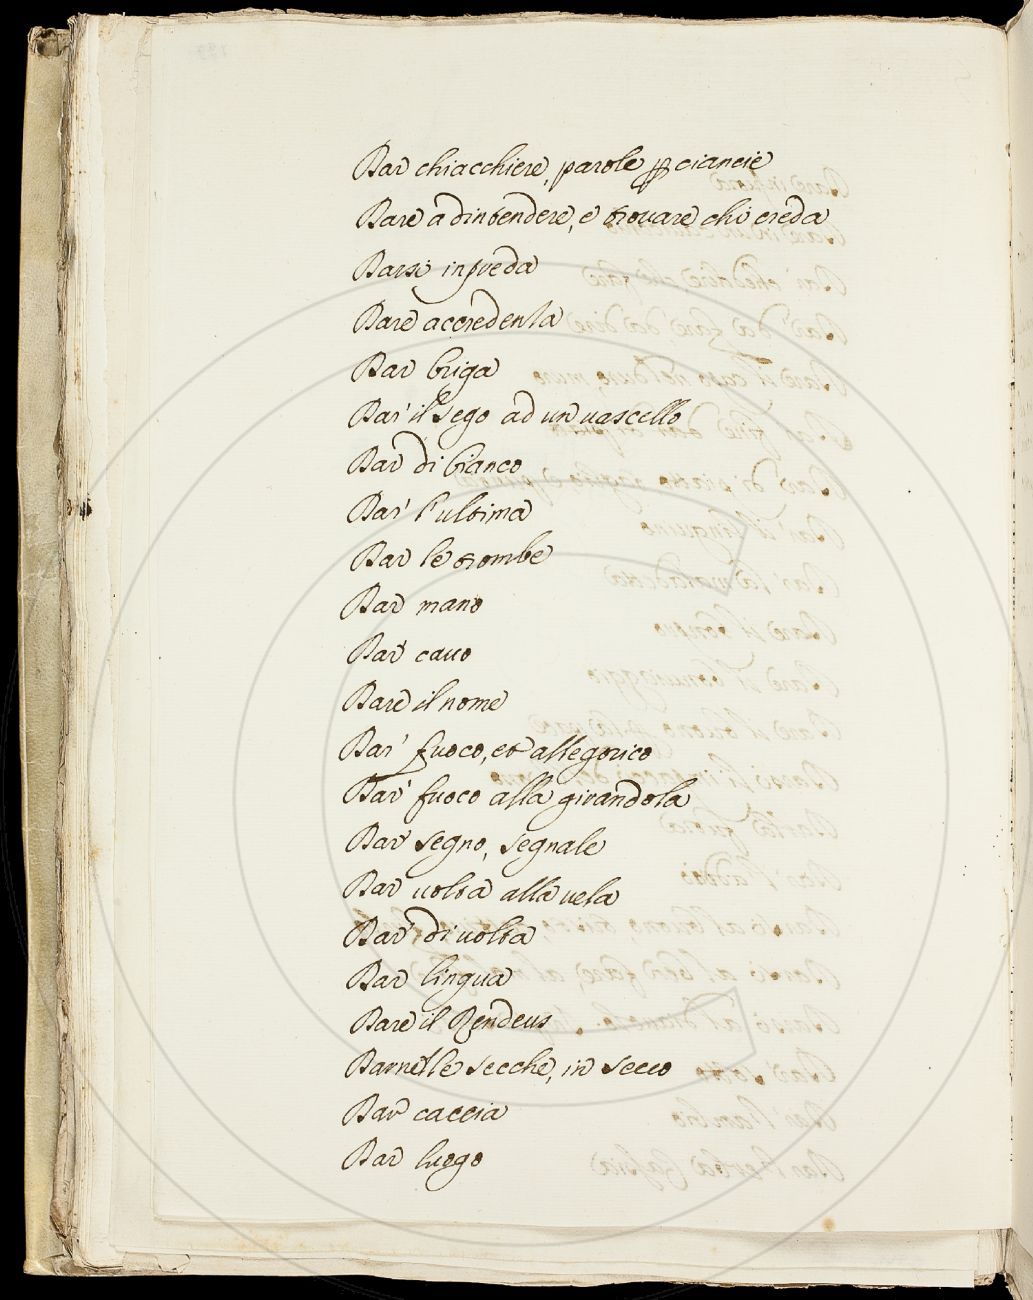 Dar chiacchiere, parole ꝑ ciancie
Dare ad intendere, e trovare chi creda
Darsi in preda
Dare a credenza
Dar briga
Dar' il sego ad un vascello
Dar di bianco
Dar' l'ultima
Dar le trombe
Dar mano
Dar cauo
Dare il nome
Dar' fuoco, et allegorico
Dar' fuoco alla girandola
Dar segno, segnale
Dar uolta alla uela
Dar di uolta
Dar lingua
Dare il Rendeus
Dar nelle secche, in secco
Dar caccia
Dar luogo